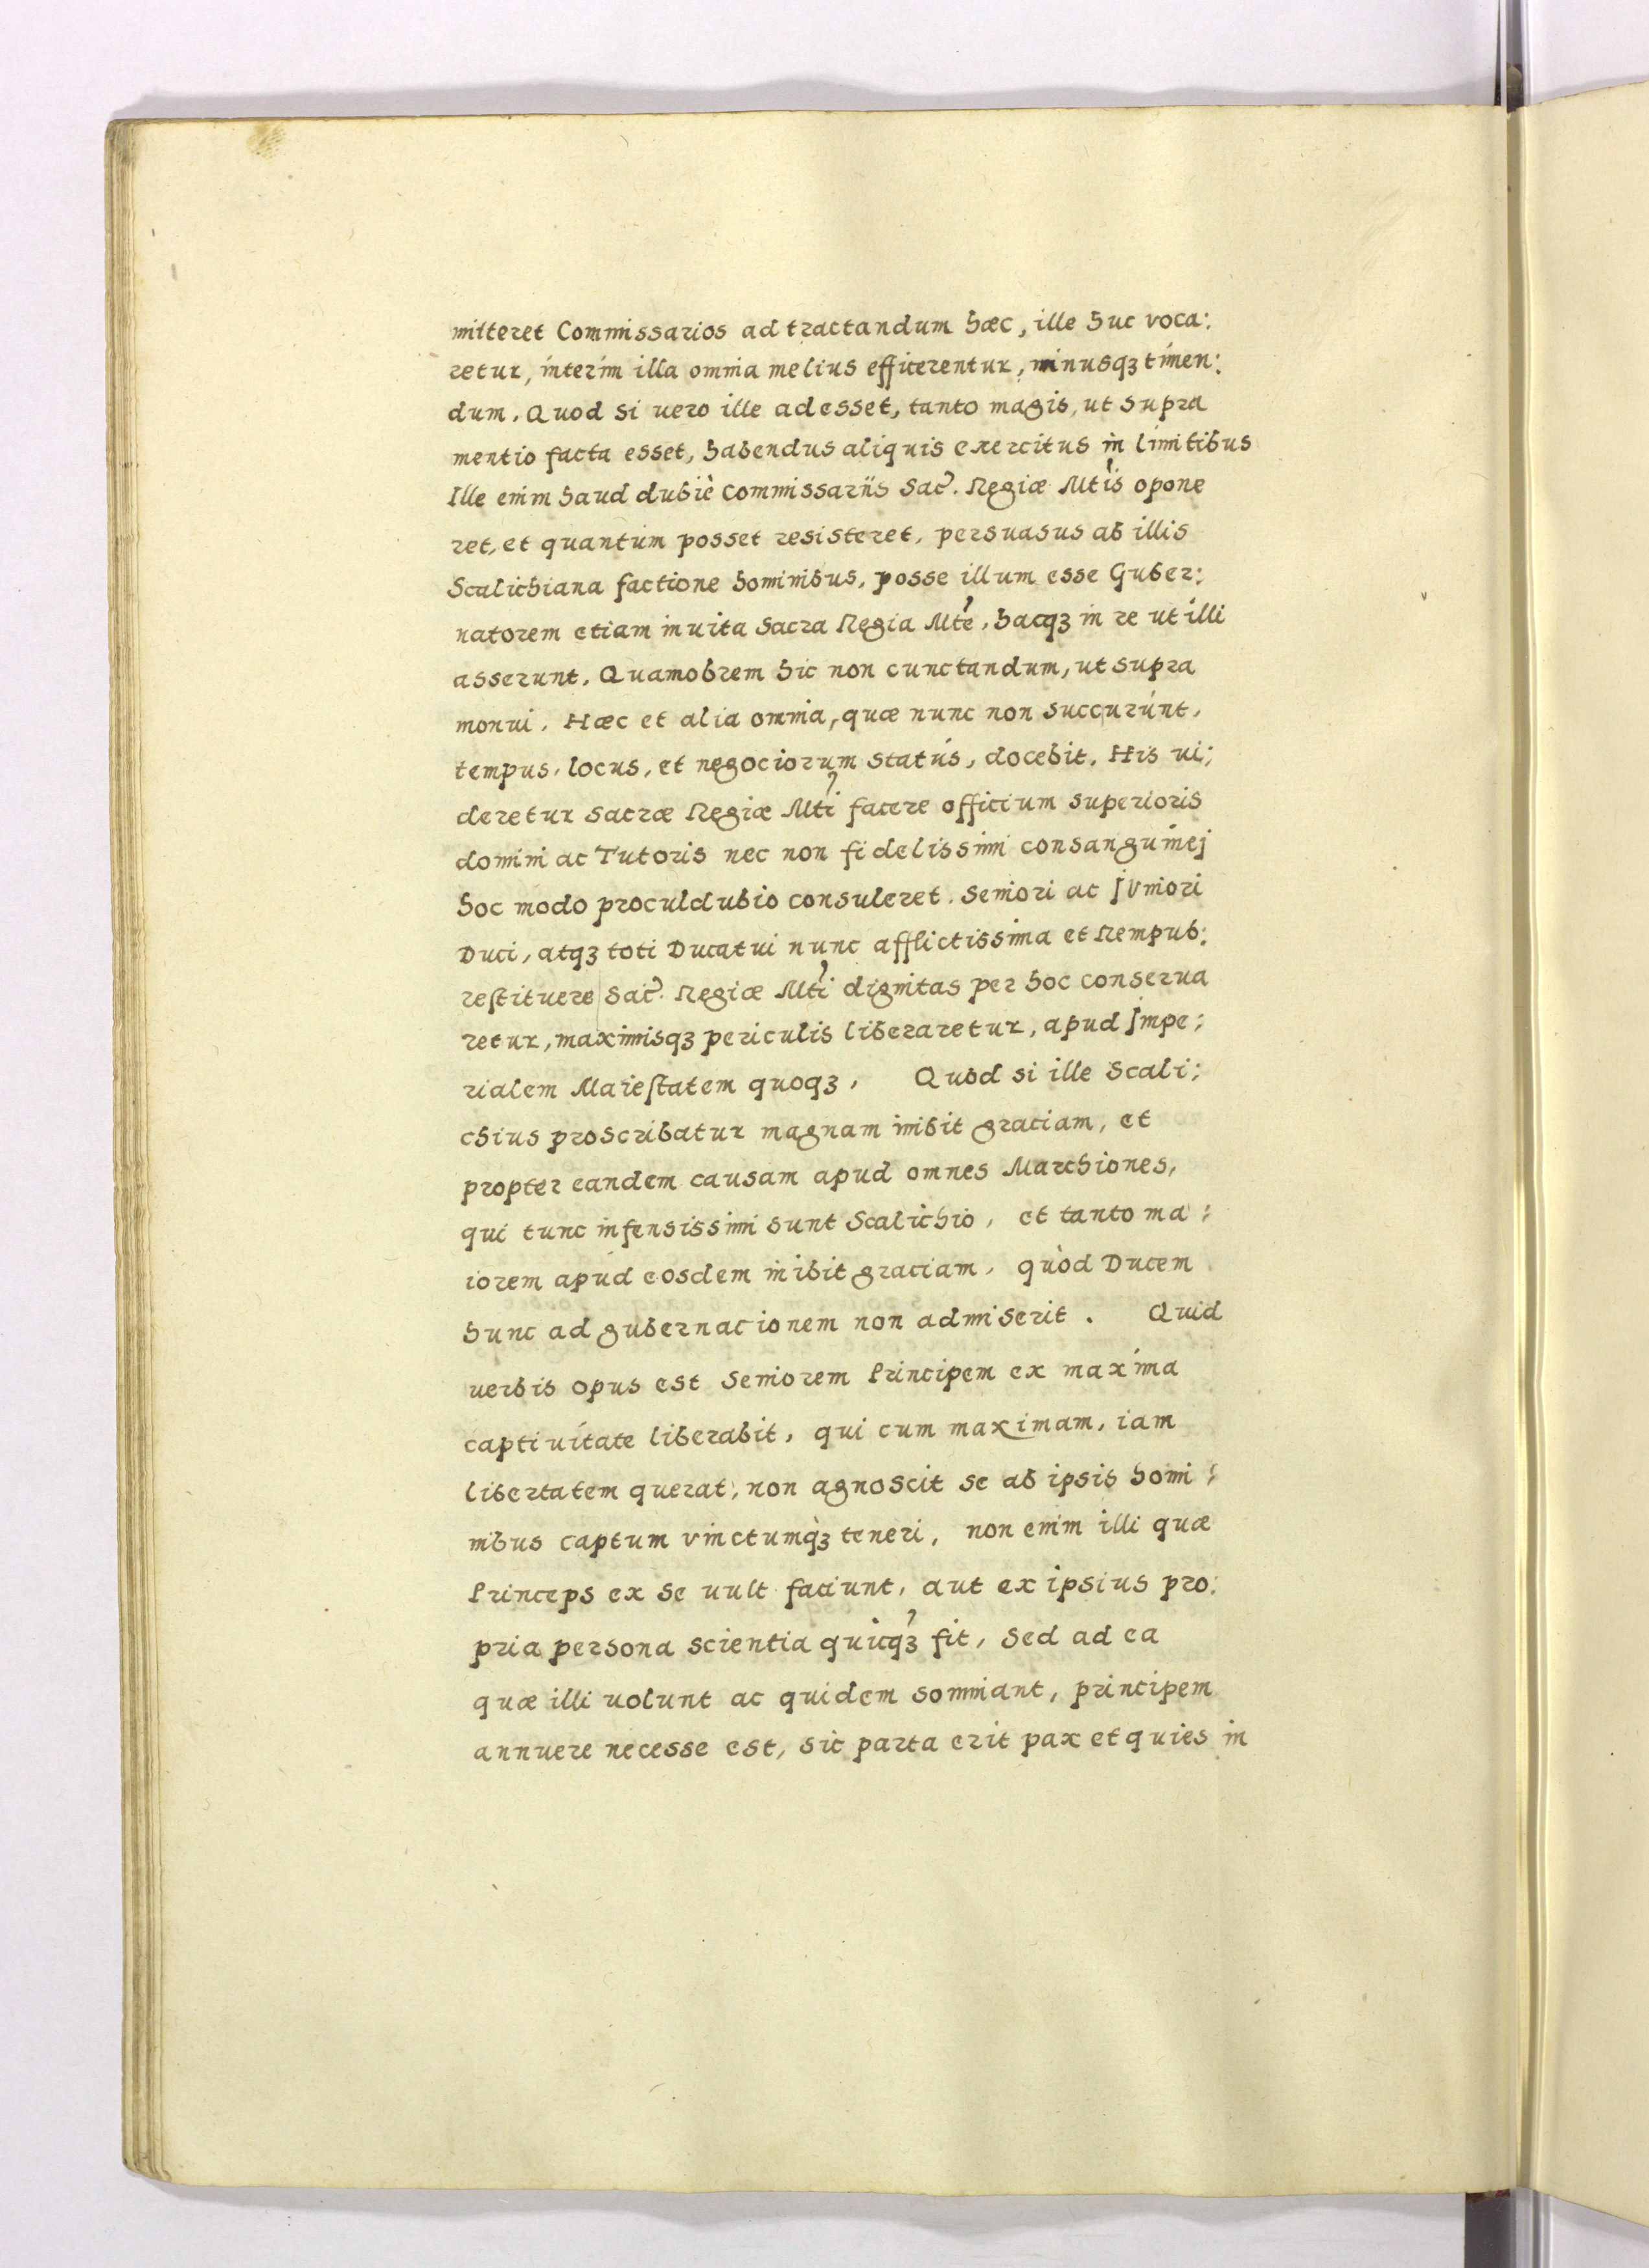 mitteret Commissarios ad tractandum hæc, ille huc voca:
retur, interim illa omnia melius efficerentur, minusqꝫ timen:
dum. Quod si uero ille adesset, tanto magis, ut supra
mentio facta esset, habendus aliquis exercitus in limitibus
Ille enim haud dubiè Commissariis Sac̃. Regiæ Mtis opone
ret, et quantum posset resisteret, persuasus ab illis
Scalichiana factione hominibus, posse illum esse Guber:
natorem etiam inuita Sacra Regia Mte, hacqꝫ in re ut illi
asserunt. Quamobrem hic non cunctandum, ut supra
monui. Hæc et alia omnia, quæ nunc non succurúnt,
tempus, locus, et negociorum statús, docebit. His ui:
deretur Sacræ Regiæ Mti facere officium superioris
domini ac Tutoris nec non fidelissimi consanguinej
hoc modo proculdubio consuleret. Seniori ac jVniori
Duci, atqꝫ toti Ducatui nunc afflictissima et Rempub:
restituere Sac̃. Regiæ Mti dignitas per hoc conserua
retur, maximisqꝫ periculis liberaretur, apud jmpe:
rialem Maiestatem quoqꝫ, Quod si ille Scali:
chius proscribatur magnam inibit graciam, et
propter eandem causam apud omnes Marchiones,
qui tunc infensissimi sunt Scalichio, et tanto ma:
iorem apud eosdem inibit graciam, quòd Ducem
hunc ad gubernacionem non admiserit. Quid
uerbis opus est Seniorem Principem ex maxima
captiuitate liberabit, qui cum maximam, iam
libertatem querat, non agnoscit se ab ipsis homi:
nibus captum vinctumqꝫ teneri, non enim illi quæ
Princeps ex se uult faciunt, aut ex ipsius pro:
pria persona scientia quicqꝫ fit, sed ad ea
quæ illi uolunt ac quidem somniant, principem
annuere necesse est, sic parta erit pax et quies in